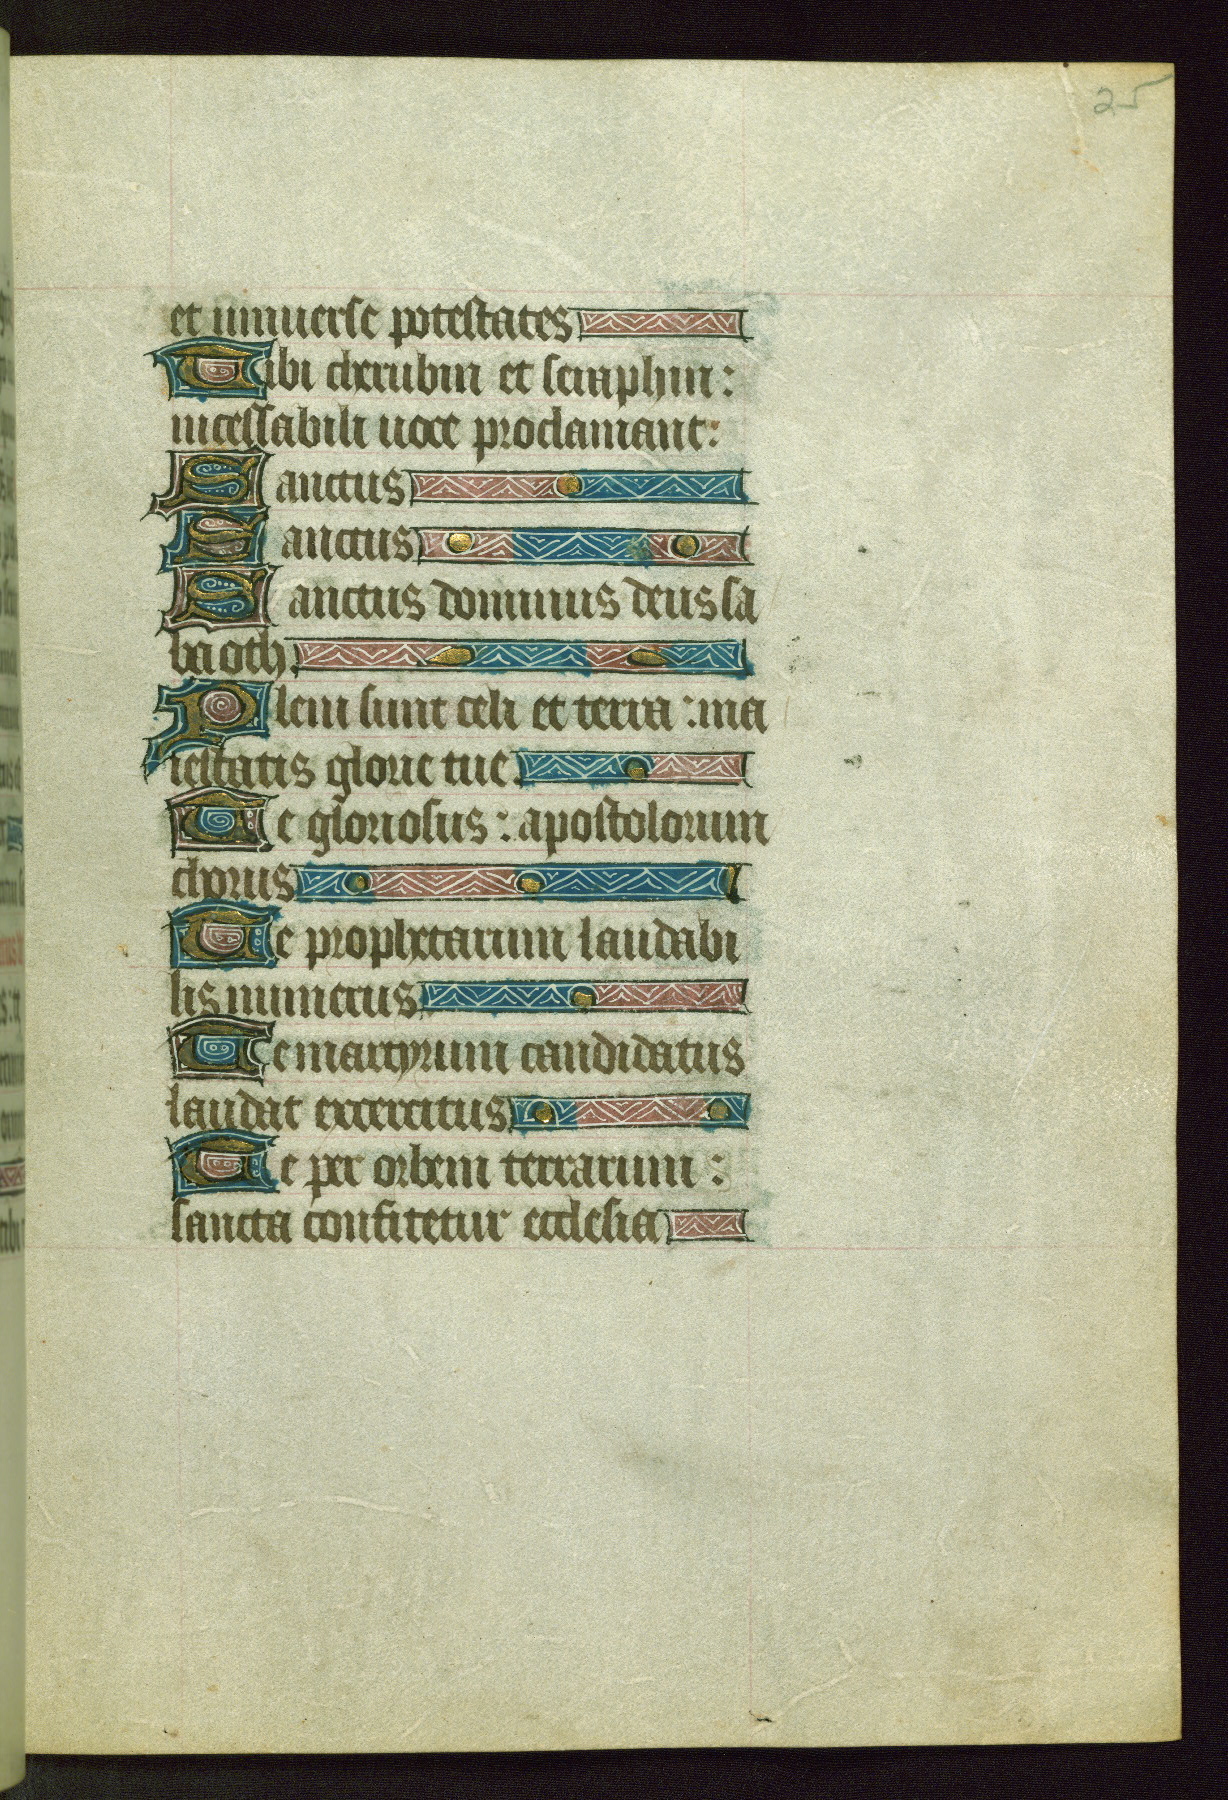 25
et uniuerse potestates
Tibi cherubin et seraphin:
incessabili uoce proclamant:
Sanctus
Sanctus
Sanctus dominus deus sa
baoth.
Pleni sunt celi et terra: ma
iestatis glorie tue.
Te gloriosus: apostolorum
chorus
Te prophetarum laudabi
lis numerus
Te martyrum candidatus
laudat excercitus
Te per orbem terrarum:
sancta confitetur ecclesia